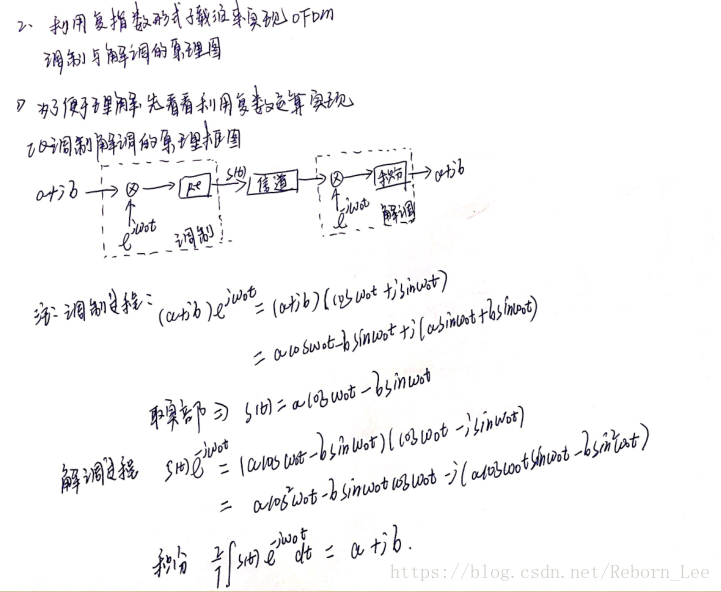 2、利用复指数形式子载波来实现OFDM
调制与解调的原理图
1) 为了便于理解,先看看利用复数运算实现
IQ调制解调的原理框图
a+jb → ⊗ → Re → s(t) → 信道 → ⊗ → 积分 → a+jb
e^{jw0t} 调制 e^{-jw0t} 解调
注:调制过程: (a+jb)e^{jw0t} = (a+jb)(cosw0t+jsinw0t)
= acosw0t-bsinw0t+j(asinw0t+bsinw0t)
取实部 ⇒ s(t)=acosw0t-bsinw0t
解调过程 s(t)e^{-jw0t} = (acosw0t-bsinw0t)(cosw0t-jsinw0t)
= acos²w0t-bsinw0tcosw0t-j(acosw0tsinw0t-bsin²w0t)
积分 2/T∫s(t)e^{-jw0t}dt = a+jb.
https://blog.csdn.net/Reborn_Lee